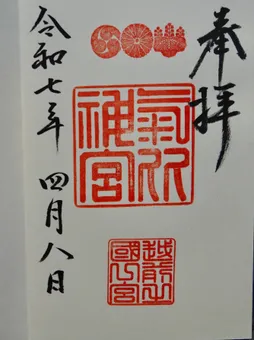 奉拝
氣比
神宮
越前之
國一宮
令和七年 四月八日